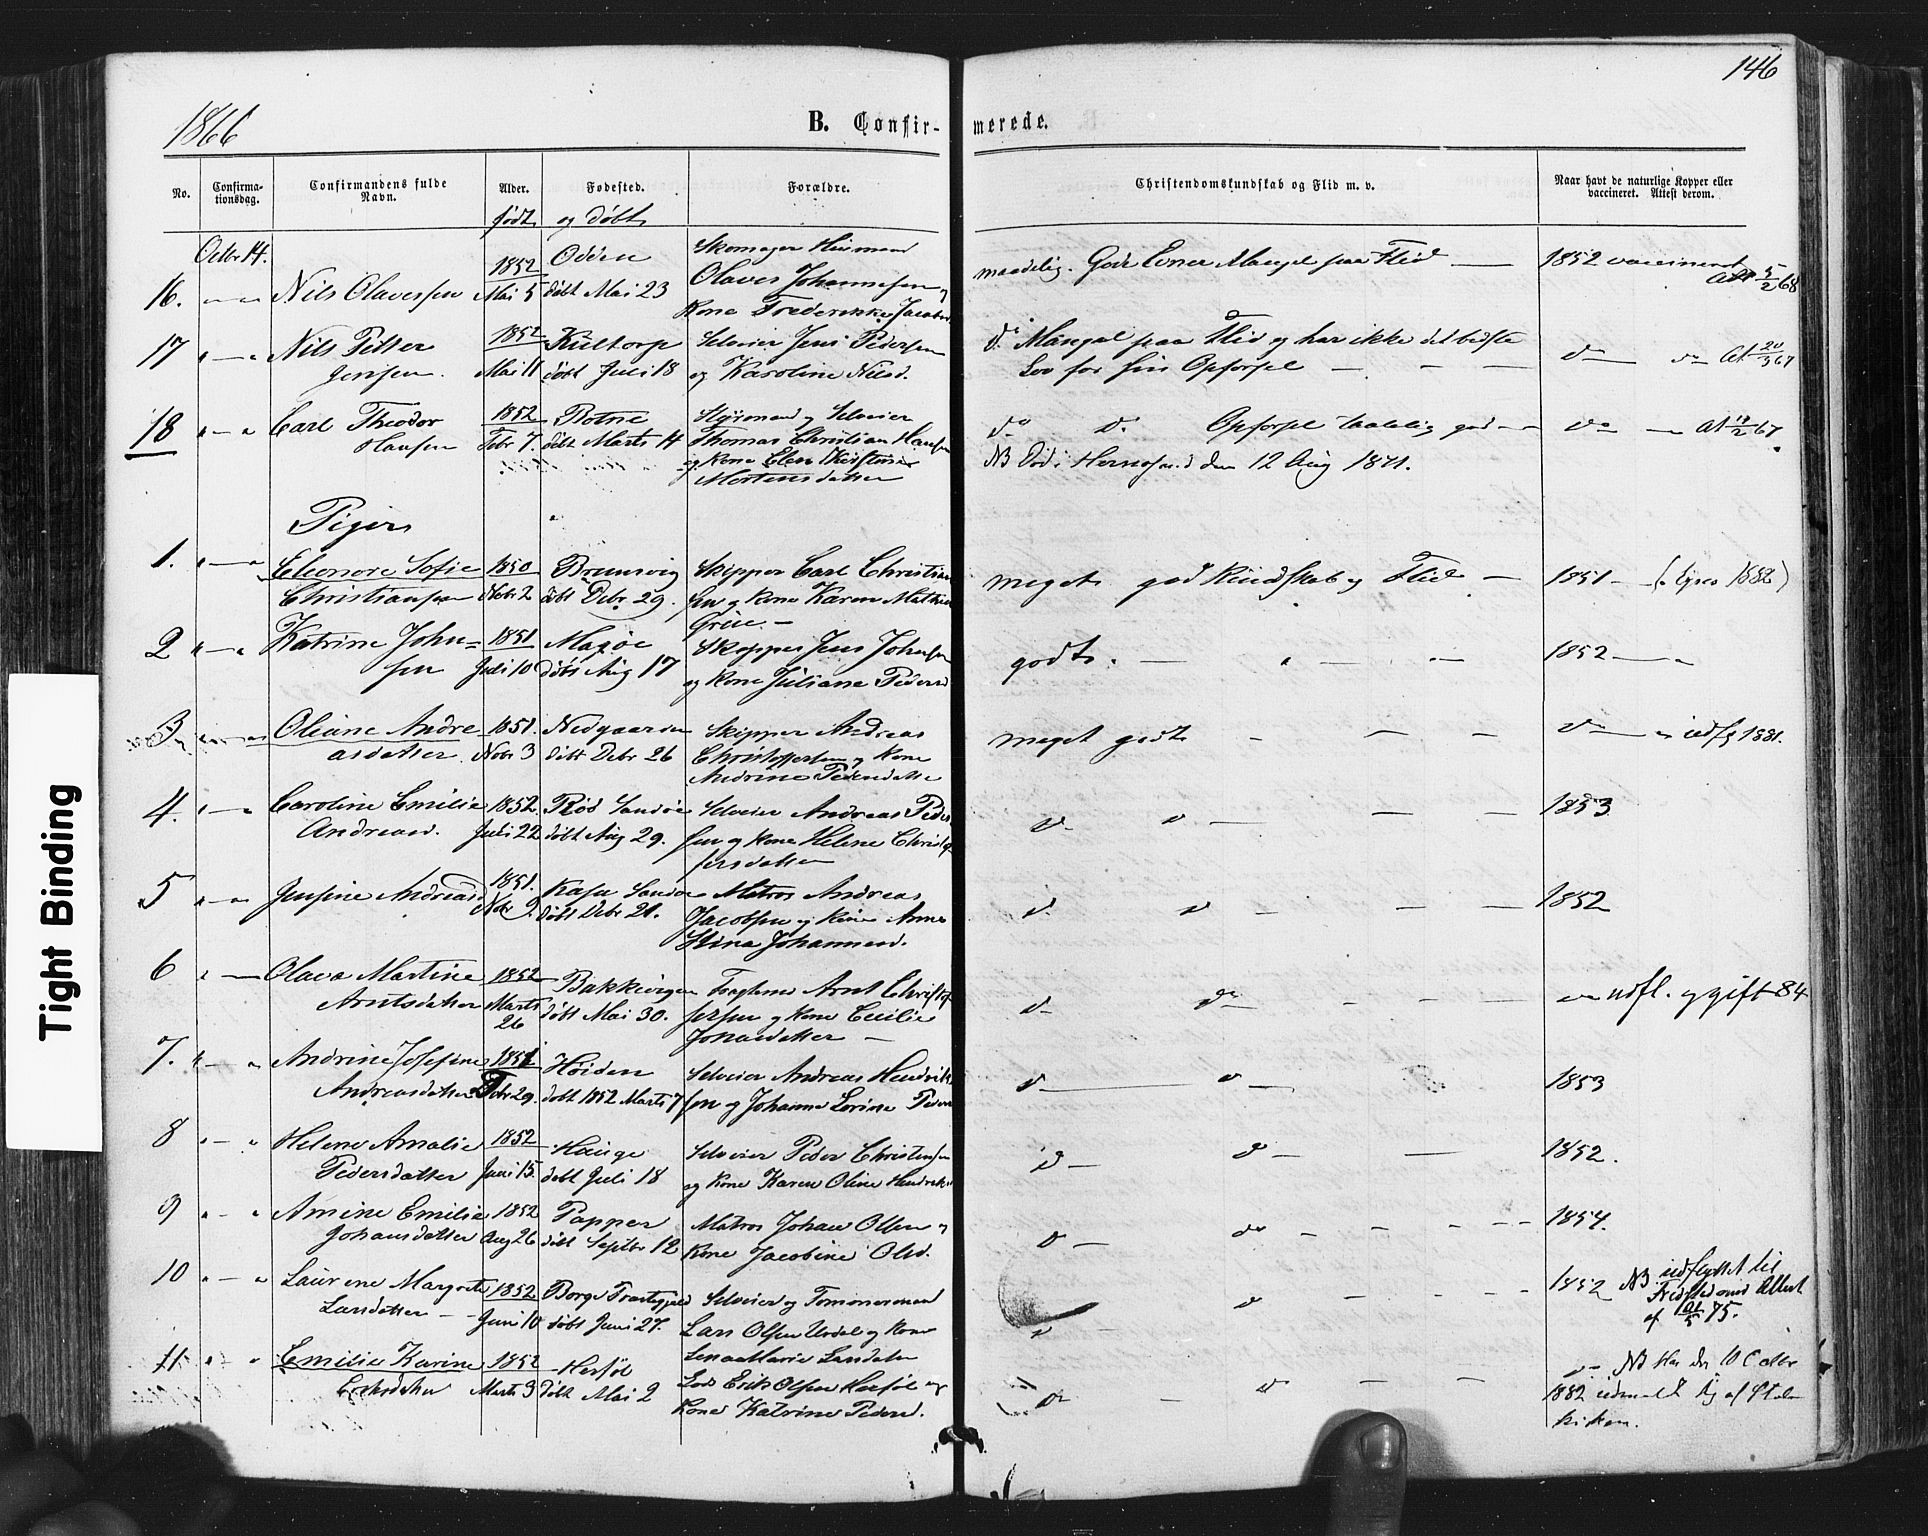 146
1866
B. Confirmerede.
No.
Confirmationsdag.
Confirmandens fulde Navn.
Alder.
Fødested.
Forældre.
Christendomskundskab og Flid m. v.
Naar havt de naturlige Kopper eller vaccineret. Attest derom.
født
og døbt
Octbr 14.
16. Nils Olavessen 1852 Mai 5 Odden døbt Mai 23
Skomager
Olaves Johannessen og
Kone Frederikke Jacobsd
maadelig. Gode Evner Mangel paa Flid
1852 vaccineret Att 5/2 68
17 Nils Petter
Jensen 1852 Mai 11 døbt Juli 18
Selveier Jens Pedersen
og Karoline Nilsd.
do Mangel paa Flid og har ikke det bedste
Lov for sin Opførsel
do do At 20/3 67
18 Carl Theodor
Hansen 1852 Febr 7 Botne døbt Marts 14
Styrmand og Selveier
Thomas Christian Hansen
og Kone Elen Kirstine
Mortensdatter
do do Opførsel taalelig god
NB Død i Hernøsand den 12 Aug 1871.
do At 67
Piger
1. Eleonore Sofie
Christiansen 1850 Nobr 2 døbt Debr 29.
Skipper Carl Christian
sen og Kone Karen Mathea
meget god Kundskab og Flid
1851
2 Katrine John-
sen 1851 Juli 10 døbt Aug 17
Skipper Jens Johnsen
og Kone Juliane Pedersd
godt.
1852
3 Oleane Andre
asdatter 1851. Nobr 3 Nedgaarden døbt Debr 26
Skipper Andreas
Christoffersen og Kone
Andrine Pedersdatter
meget godt
do udfl 1881.
4. Caroline Emilie
Andreasd. 1852. Juli 22 Rød Sandøe døbt Aug 29.
Selveier Andreas Peder
sen og Kone Helene Christof
fersdatter
do do
1853
5 Jensine Andreasd 1851. Nobr 9. Sandøe døbt Debr 21.
Matros Andreas
Jacobsen og Kone Anne
Stina Johannesd.
do do
1852
6 Olava Martine
Arntsdatter 1852 Marts 26 Bakkevigen døbt Mai 30.
Arnt Christof
fersen og Kone Cecilie
Jonasdatter
do do
do udfl. og gift 84
7. Andrine Josefine
Andreasdatter Febr 29. Høiden døbt 1852 Marts 7
Selveier Andreas Hendrik
sen og Johanne Lovise Peders
do do
1853
8 Helene Amalie
Pedersdatter 1852 Juni 15. Hauge døbt Juli 18
Selveier Peder Christensen
og Kone Karen Oline Hendriks
do do
1852.
9 Amine Emilie
Johansdatter 1852 Aug 26 Papper døbt Septbr 12
Matros Johan Olsen og
Kone Jacobine Olsd.
do do
1854.
10 Laurine Margrete
Larsdatter 1852 Juni 10 døbt Juni 27.
Selveier og Tømmermand
Lars Olsen og Kone
Lena Marie Larsdatter
do do
1852 NB udflyttet til
Fredstad med Attest
af 21/5 75.
11. Emilie Karine
Eriksdatter 1852 Marts 3 Herføl døbt Mai 2
Lods Erik Olsen Herføl og
Kone Katrine Pedersd.
do do
do NB Har den 10 Octbr
1882 udmeldt sig af Stats
kirken.
Tight Binding